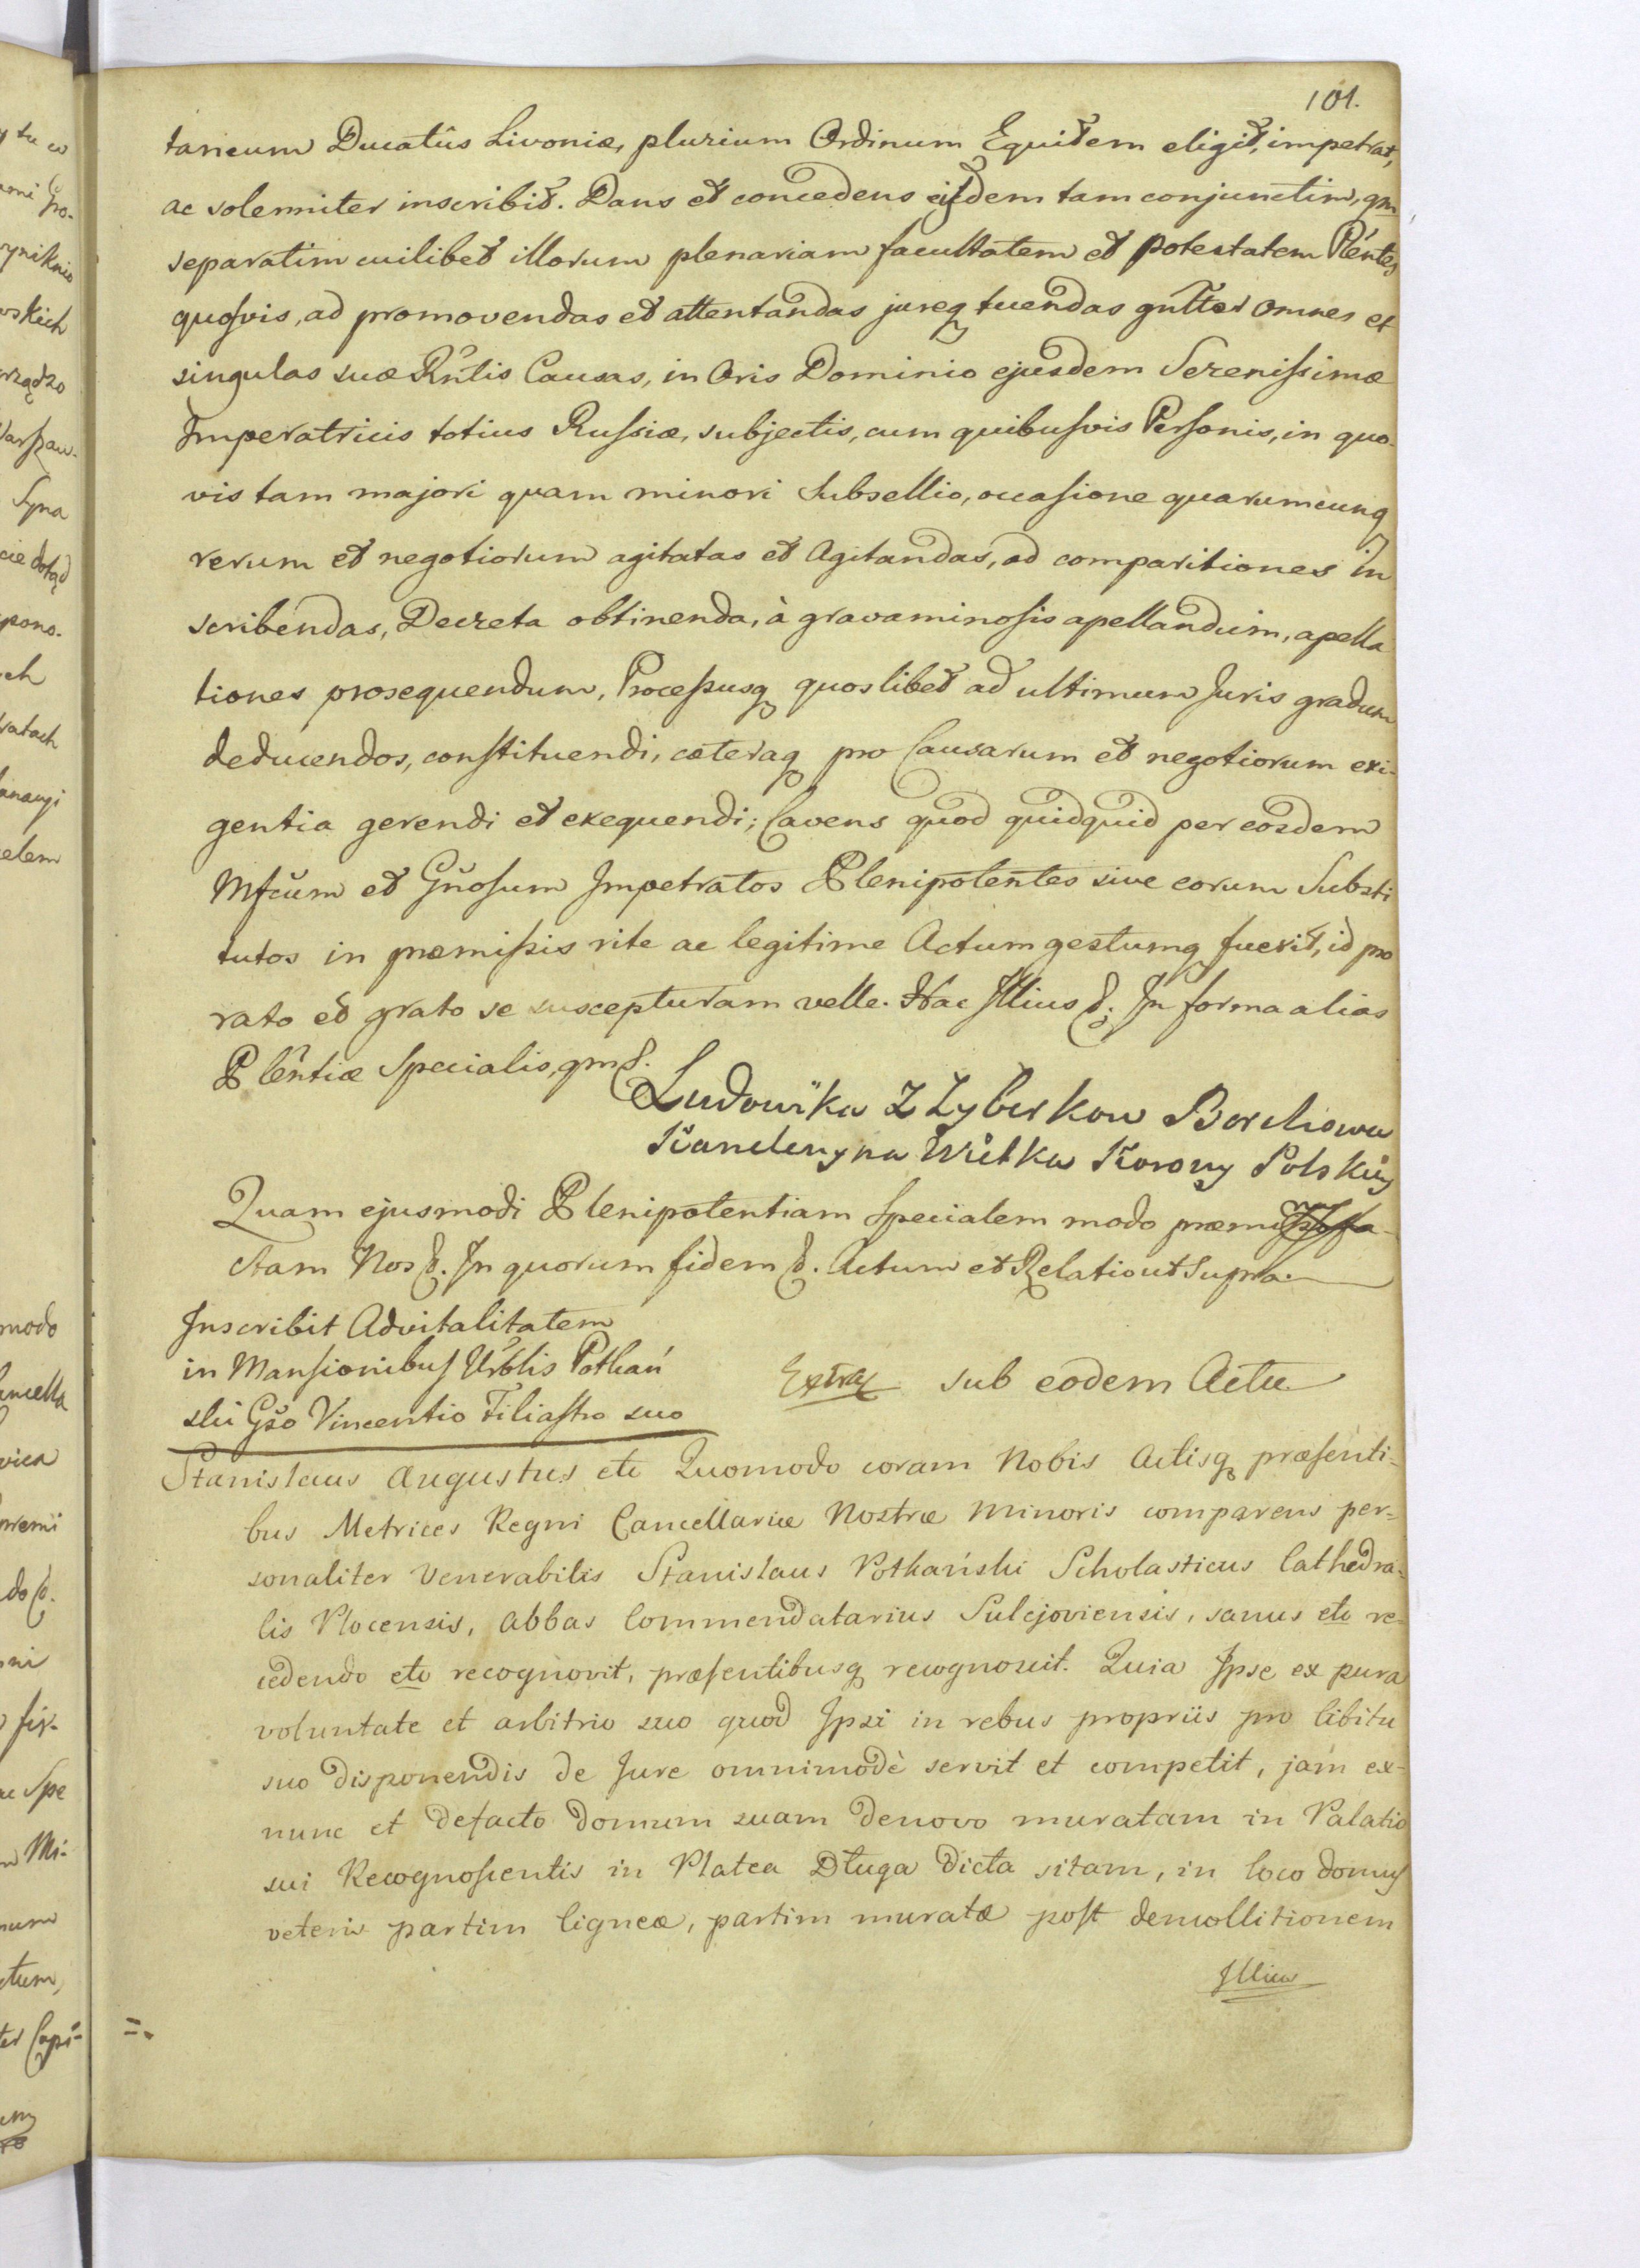 101.
taneum Ducatûs Livoniæ, plurium Ordinum Equitem eligit, impetrat,
ac solenniter inscribit. Dans et concedens eisdem tam conjunctim, qm
separatim cuilibet illorum plenariam facultatem et potestatem Plentes
quosvis, ad promovendas et attentandas jureq tuendas gnlter omnes et
singulas suæ Rntis Causas, in Oris Dominio ejusdem Serenissimæ
Imperatricis totius Russiæ, subjectis, cum quibusvis Personis, in quo-
vis tam majori quam minori Subsellio, occasione quarumcunq
rerum et negotiorum agitatas et Agitandas, ad comparitiones in
scribendas, Decreta obtinenda, à gravaminosis apellandum, apella
tiones prosequendum, Processusq quoslibet ad ultimum Juris gradum
deducendos, constituendi, cæteraq pro Causarum et negotiorum exi-
gentia gerendi et exequendi; Cavens quod quidquid per eosdem
Mfcum et Gnosum Impetratos Plenipotentes sive eorum Substi
tutos in præmissis rite ac legitime Actum gestumq fuerit, id pro
rato et grato se suscepturam velle. Hac Illius &. In forma alias
Plentiæ Specialis, qm &.
Ludowika z Zyberkow Borchowa
Kanclerzyna Wielka Korony Polskiey
Quam ejusmodi Plenipotentiam Specialem modo præmisso fa-
ctam Nos &. In quorum fidem &. Actum et Relatio ut Supra.
Inscribit Advitalitatem
in Mansionibus Urblis Potkań
ski Gso Vincentio Filiastro suo
Extrax sub eodem Actu
Stanislaus Augustus etc Quomodo coram Nobis Actisq præsenti-
bus Metrices Regni Cancellariæ Nostræ Minoris comparens per-
sonaliter Venerabilis Stanislaus Potkański Scholasticus Cathedra-
lis Plocensis, Abbas Commendatarius Sulejoviensis, sanus etc re-
cedendo etc recognovit, præsentibusq recognoscit. Quia Ipse ex pura
voluntate et arbitrio suo quod Ipsi in rebus propriis pro libitu
suo disponendis de Jure omnimodè servit et competit, jam ex-
nunc et defacto domum suam denovo muratam in Palatio
sui Recognoscentis in Platea Długa dicta sitam, in loco domus
veteris partim ligneæ, partim muratæ post demollitionem
Illius
=.